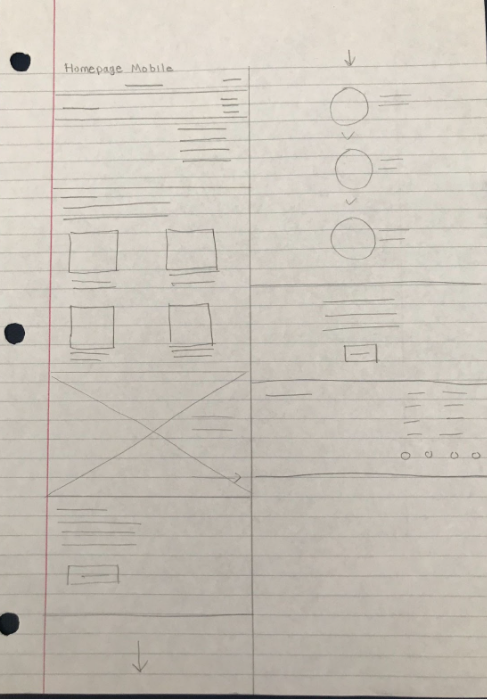 Homepage Mobile